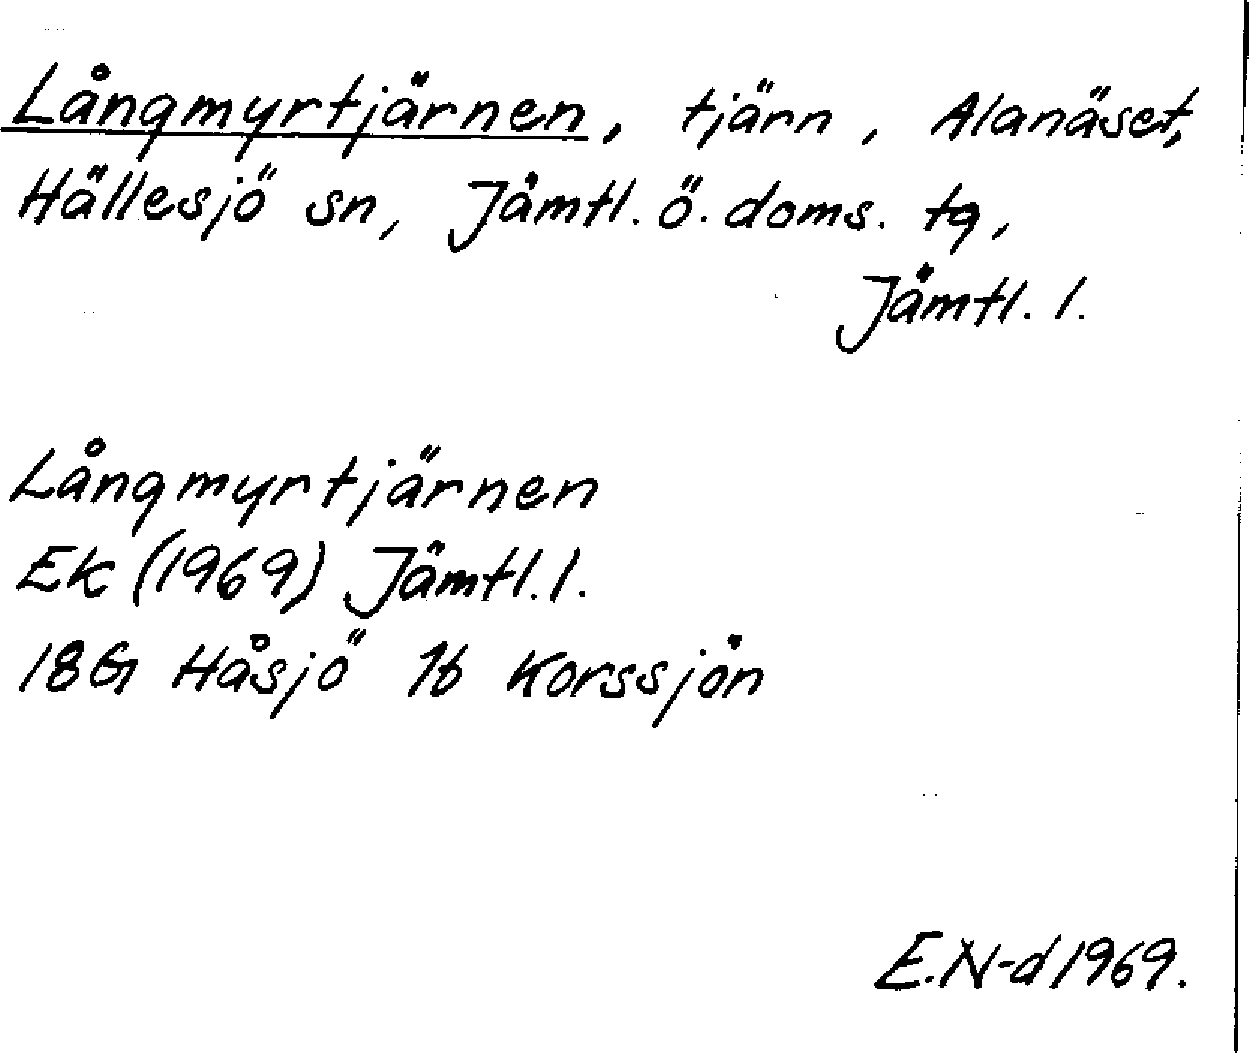 Långmyrtjärnen, tjärn, Alanäset,
Hällesjö sn, Jämtl. ö. doms. tg,
Jämtl. l.
Långmyrtjärnen
Ek (1969) Jämtl. l.
18G Håsjö 1b Korssjön
E.N-d 1969.